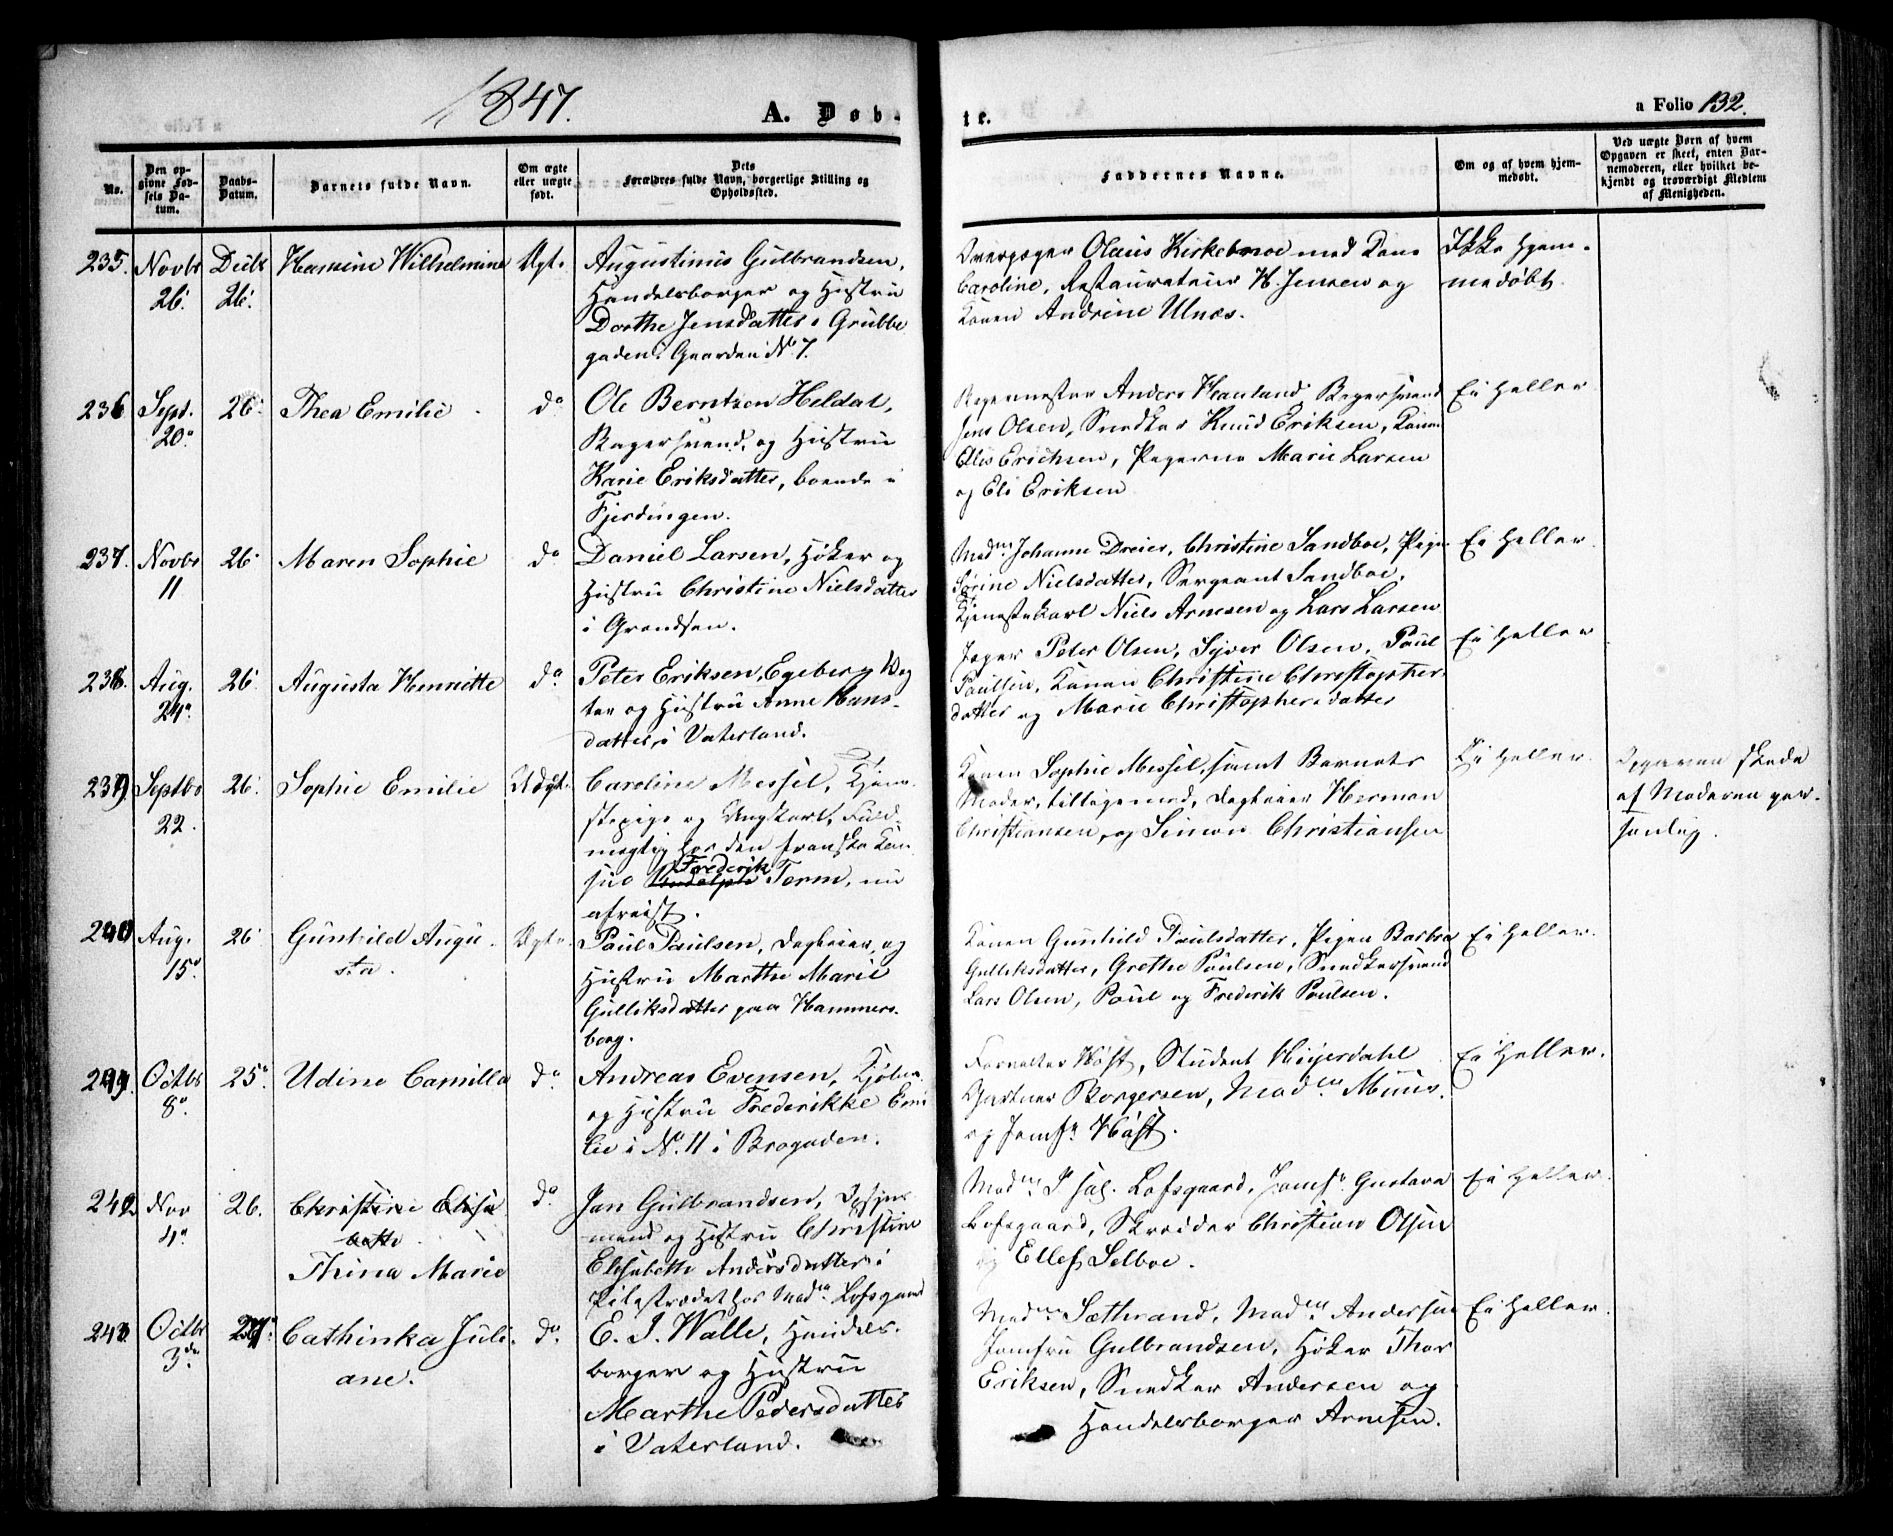 1847.
A. Døb-
te.
a Folio 132.
No.
Den op-
givne Fød-
sels Da-
tum.
Daabs-
Datum.
Barnets fulde Navn.
Om ægte
eller uægte
født.
Dets
Forældres fulde Navn, borgerlige Stilling og
Opholdssted.
Faddernes Navne.
Om og af hvem hjem-
medøbt.
Ved uægte Børn af hvem
Opgaven er skeet, enten Bar-
nemoderen, eller hvilket be-
kjendt og troværdigt Medlem
af Menigheden.
235. Novbr 26. Decbr 26. Hansine Wilhelmine Ægt.
Augustinus Gulbrandsen,
Handelsborger og Hustru
Dorthe Jensdatter i Grubbe
gaden i Gaarden No. 7.
Olaus Kirkebmoe med Kone
Caroline, Restaurateur H. Jensen og
Konen Andrine Ulnæs.
Ikke hjem-
medøbt.
236 Sept. 20. 26. Thea Emilie do
Ole Berntsen Heldal,
Bagersvend, og Hustru
Karie Eriksdatter, boende i
Fjerdingen.
Bagermester Anders Hauland, Bagersvend
Jens Olsen, Snedker Knud Eriksen, Konen
Ellis Erichsen, Pigerne Marie Larsen
og Eli Eriksen
Ei heller
237. Novbr 11 26. Maren Sophie do
Daniel Larsen, Høker og
Hustru Christine Nielsdatter
i Grændsen.
Madm. Johanne Dreier, Christine Sandboe, Pigen
Sørine Nielsdatter, Sergeant Sandboe,
Tjenestekarl Niels Arnesen og Lars Larsen
Ei heller.
238. Aug. 24. 26. Augusta Henriette do
Peter Eriksen, Egeberg Væg
ter og Hustru Anne Hans-
datter, i Vaterland.
Jæger Peter Olsen, Syver Olsen, Paul
Paulsen, Konen Christine Christopher-
datter og Marie Christophersdatter
Ei heller
239 Septbr 22. 26. Sophie Emilie Uægt.
Caroline Messel, Tjene-
stepige og Ungkarl, Fuld-
mægtig hos den franske Con
sul Rudolph Frederik Term, nu
afreist.
Konen Sophie Messel, samt Barnets
Moder, tilligemed, Dagleier Herman
Christiansen, og Simon Christiansen
Ei heller.
Opgaven skede
af Moderen per-
sonlig.
240 Aug. 15. 26. Gunhild Augu-
sta. Ægt.
Paul Paulsen, Dagleier, og
Hustru Marthe Marie
Gulliksdatter paa Hammers-
borg.
Konen Gunhild Paulsdatter, Pigen Barbra
Gulliksdatter, Grethe Paulsen, Snedkersvend
Lars Olsen, Paul og Frederik Paulsen.
Ei heller.
241. Octbr 8. 25. Udine Camilla do
Andreas Evensen,
og Hustru Frederikke Emi
lie i No. 11 i Brogaden.
Forvalter Høst, Student
Gartner Borgersen, Madm. Muus.
og Jomfr. Høst.
Ei heller.
242 Nov 4. 26. Christine Elisa
beth
Thina Marie do
Jan Gulbrandsen,
mand og Hustru Christine
Elisabeth Andersdatter i
Pilestrædet hos Madm. Lofsgaard
Madm. Lofsgaard, Jomfr. Gustava
Lofsgaard, Skræder Christian Olsen
og Ellef Selboe.
Ei heller.
243 Octbr 3die 27. Cathinka Juli-
ane. do
E. J. Walle, Handels-
borger og Hustru
Marthe Pedersdatter
i Vaterland.
Madm. Sæthrand, Madm. Andersen
Jomfru Gulbrandsen, Høker Thor
Eriksen, Snedker Andersen og
Handelsborger Arnesen.
Ei heller.